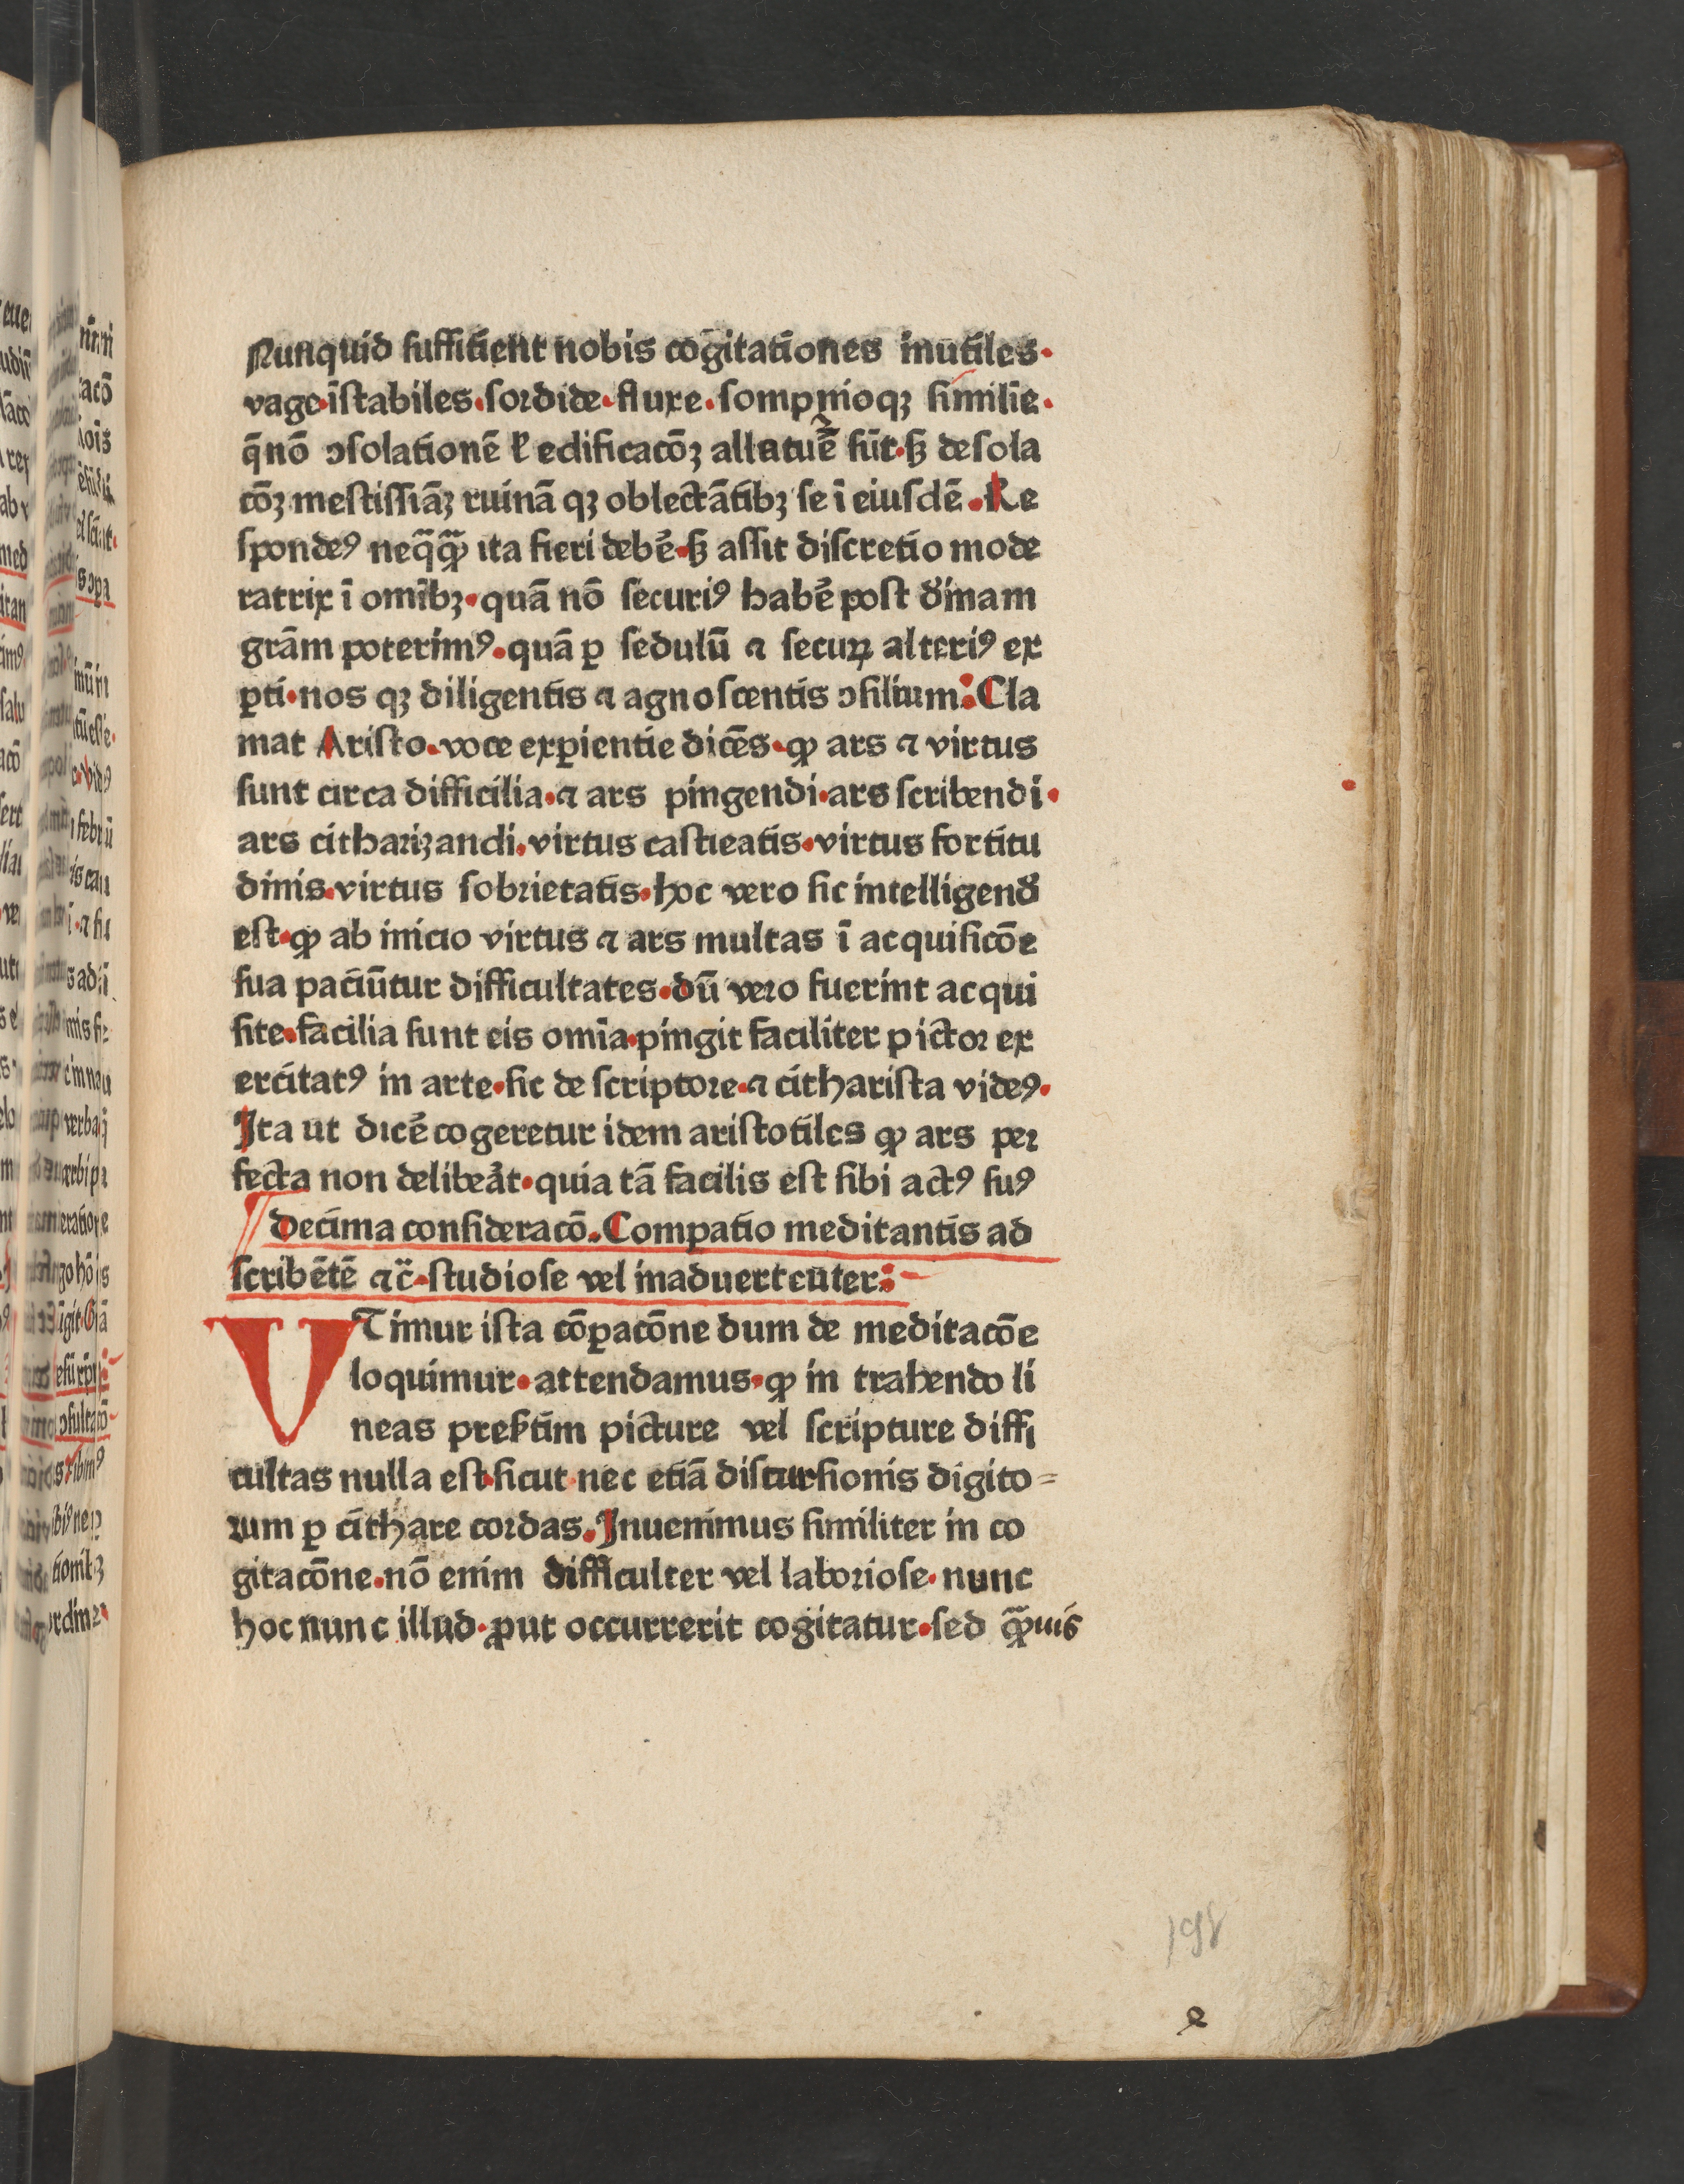 Nunquid suffitient nobis cogitationes inutiles·
vage·īstabiles·sordide·fluxe·sompnioqꝫ similie·
q̄ nō ↄsolationē ł edificacōꝫ allatuē sūt·sꝫ desola
cōꝫ mestissiāꝫ ruinā qꝫ oblectātibꝫ se ī eiusdē·Re
spondeꝰ neq̄q̄ꝫ ita fieri debē·sꝫ assit discretio mode
ratrix ī omībꝫ·quā nō securiꝰ habē post diīnam
grām poterimꝰ·quā ꝑ sedulū ⁊ securꝫ alteriꝰ ex
ꝑti·nos qꝫ diligentis ⁊ agnoscentis ↄsilium:Cla
mat Aristo·voce exꝑientie dicēs·ꝙ ars ⁊ virtus
sunt circa difficilia·⁊ ars pingendi·ars scribendi·
ars citharizandi·virtus castieatis·virtus fortitu
dinis·virtus sobrietatis·hoc vero sic intelligend̄
est·ꝙ ab inicio virtus ⁊ ars multas ī acquisicōe
sua paciūtur difficultates·dū vero fuerint acqui
site·facilia sunt eis omīa·pingit faciliter pictor ex
ercitatꝰ in arte·sic de scriptore·⁊ citharista videꝰ·
Ita ut dicē cogeretur idem aristotiles ꝙ ars per
fecta non delibeāt·quia tā facilis est sibi actꝰ suꝰ
decima consideracō·Comꝑatio meditantis ad
scribētē ⁊c̄·studiose vel inaduertenter:
UTimur ista cōꝑacōne dum de meditacōe
loquimur·attendamus·ꝙ in trahendo li
neas presītim picture vel scripture diffi
cultas nulla est·sicut nec etiā discursionis digito=
rum ꝑ cithare cordas·Inuenimus similiter in co
gitacōne·nō enim difficulter vel laboriose·nunc
hoc nunc illud·ꝓut occurrerit cogitatur·sed q̄ꝫuis
198
e